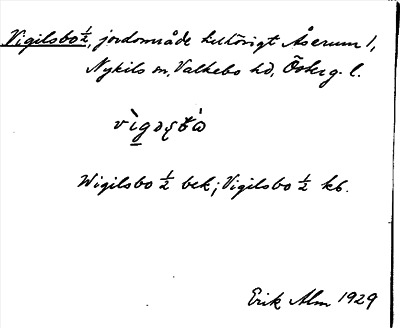 Vigilsbo ½, jordområde hithörigt Åserum 1,
Nykils sn, Valkebo hd, Österg. l.
vìgəʂtὼ
Wigilsbo ½ bek; Vigilsbo ½ kb.
Erik Alm 1929